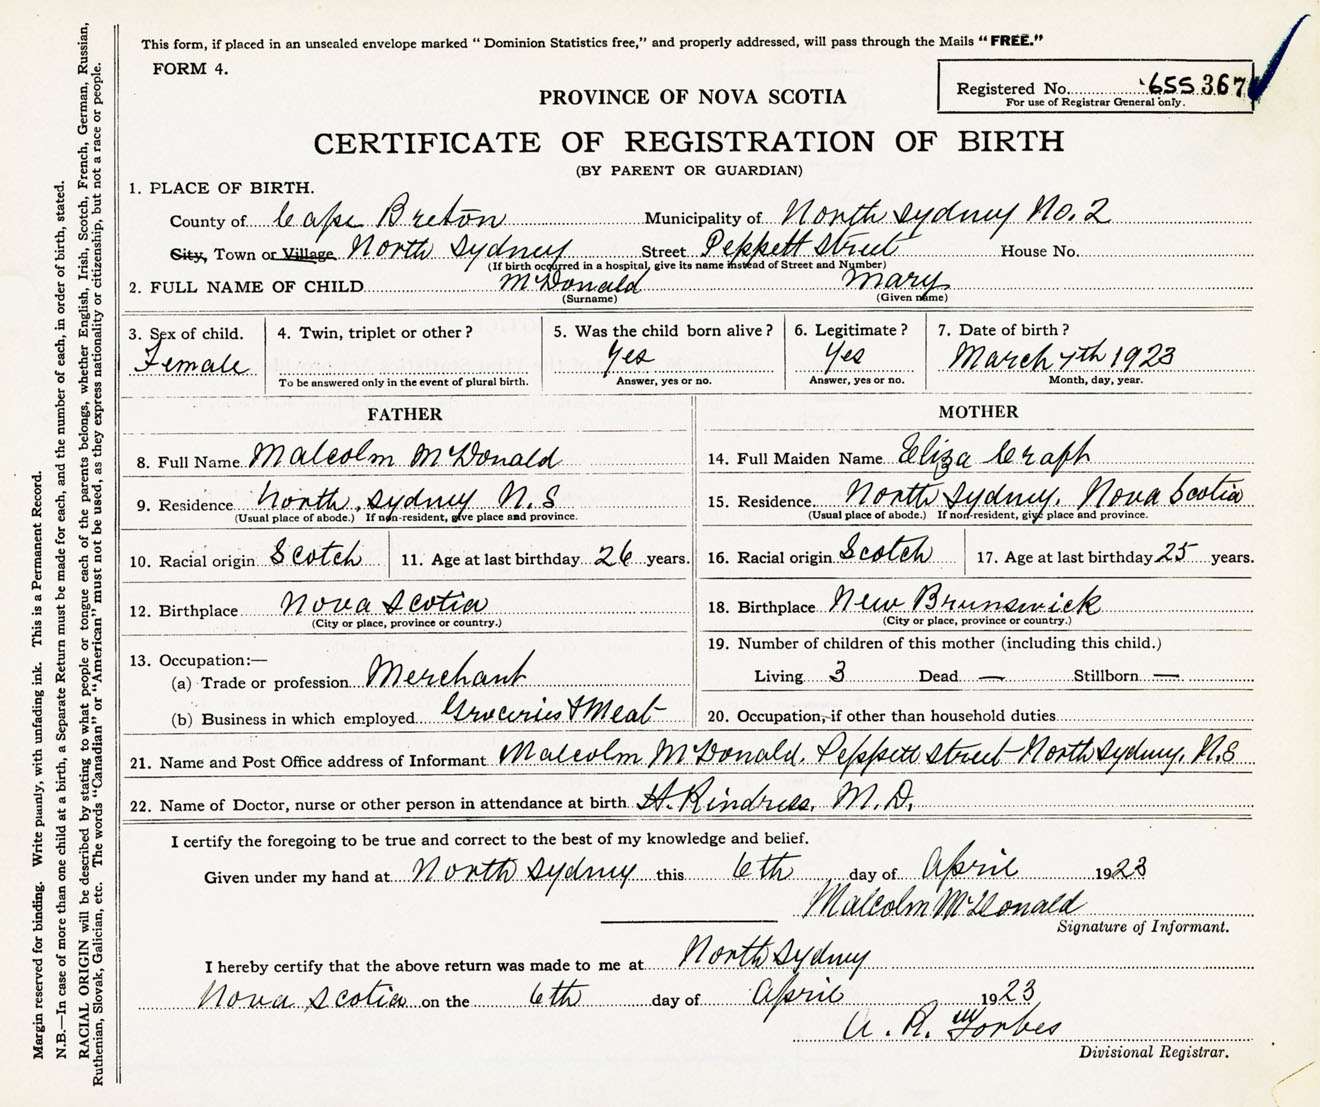 This form, if placed in an unsealed envelope marked " Dominion Statistics free," and properly addressed, will pass through the Mails " FREE."
FORM 4.
Registered No. 655 367
For use of Registrar General only.
PROVINCE OF NOVA SCOTIA
CERTIFICATE OF REGISTRATION OF BIRTH
(BY PARENT OR GUARDIAN)
1. PLACE OF BIRTH.
County of Cape Breton Municipality of North Sydney No. 2
City, Town or Village North Sydney Street Peppett Street House No.
(If birth occurred in a hospital, give its name instead of Street and Number)
2. FULL NAME OF CHILD McDonald Mary
(Surname) (Given name)
3. Sex of child. 4. Twin, triplet or other? 5. Was the child born alive? 6. Legitimate? 7. Date of birth?
Female Yes Yes March 7th 1923
To be answered only in the event of plural birth. Answer, yes or no. Answer, yes or no. Month, day, year.
FATHER MOTHER
8. Full Name Malcolm McDonald 14. Full Maiden Name Eliza Craft
9. Residence North Sydney N.S 15. Residence North Sydney, Nova Scotia
(Usual place of abode.) If non-resident, give place and province. (Usual place of abode.) If non-resident, give place and province.
10. Racial origin Scotch 11. Age at last birthday 26 years. 16. Racial origin Scotch 17. Age at last birthday 25 years.
12. Birthplace Nova Scotia 18. Birthplace New Brunswick
(City or place, province or country.) (City or place, province or country.)
13. Occupation:— 19. Number of children of this mother (including this child.)
(a) Trade or profession Merchant Living 3 Dead — Stillborn —
(b) Business in which employed Groceries & Meat 20. Occupation, if other than household duties
21. Name and Post Office address of Informant Malcolm McDonald. Peppett Street North Sydney, N.S
22. Name of Doctor, nurse or other person in attendance at birth H. Rindress, M.D.
I certify the foregoing to be true and correct to the best of my knowledge and belief.
Given under my hand at North Sydney this 6th day of April 1923
Malcolm McDonald
Signature of Informant.
I hereby certify that the above return was made to me at North Sydney
Nova Scotia on the 6th day of April 1923
A. R. Forbes
Divisional Registrar.
Margin reserved for binding. Write plainly, with unfading ink. This is a Permanent Record.
N.B.—In case of more than one child at a birth, a Separate Return must be made for each, and the number of each, in order of birth, stated.
RACIAL ORIGIN will be described by stating to what people or tongue each of the parents belongs, whether English, Irish, Scotch, French, German, Russian,
Ruthenian, Slovak, Galician, etc. The words "Canadian" or "American" must not be used, as they express nationality or citizenship, but not a race or people.